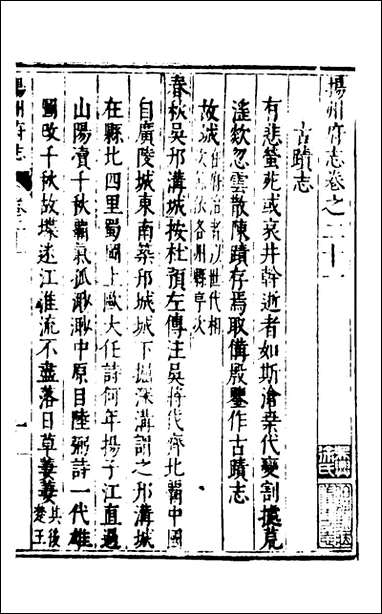 揚州府志卷之二十
古蹟志
有悲螢苑或哀井幹逝者如斯滄桑代變割據荒
滛歘忽雲散陳蹟存焉取備殿鑒作古蹟志
故城
春秋吳邗溝城按杜預左傳注吳將伐齊北霸中國
自廣陵城東南築邗城城下掘深溝謂之邗溝城
在縣北四里蜀岡上歐大任詩何年揚子江直過
山陽瀆千秋霸氣孤渺渺中原目陸弼詩一代雄
圖改千秋故堞迷江淮流不盡落日草萋萋其後楚王